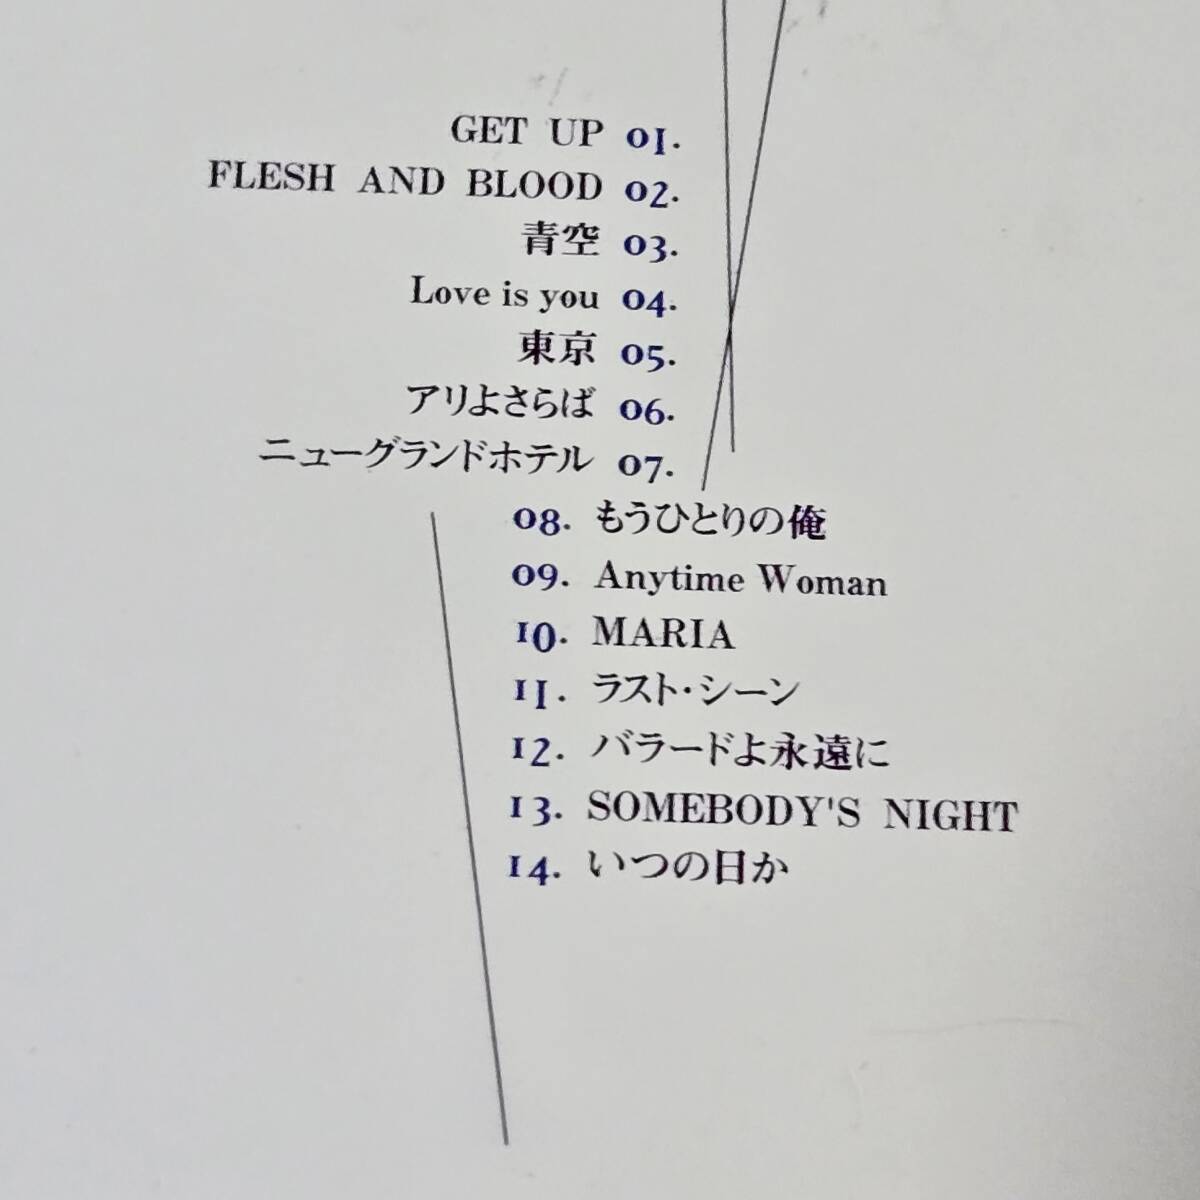 GET UP 01.
FLESH AND BLOOD 02.
青空 03.
Love is you 04.
東京 05.
アリよさらば 06.
ニューグランドホテル 07.
08. もうひとりの俺
09. Anytime Woman
10. MARIA
11. ラスト・シーン
12. バラードよ永遠に
13. SOMEBODY'S NIGHT
14. いつの日か